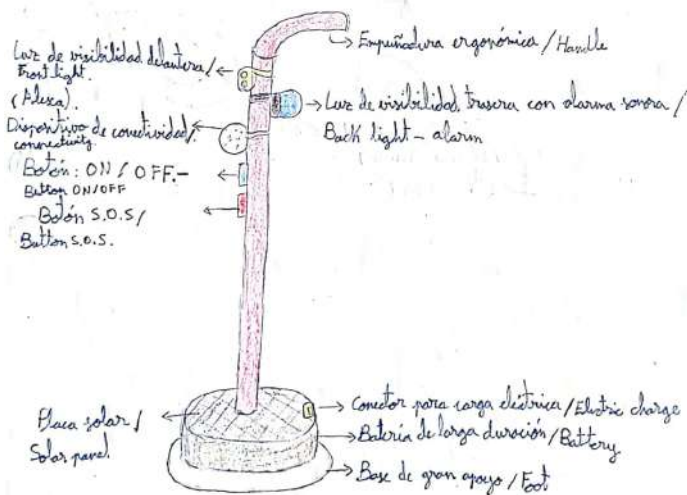 Luz de visibilidad delantera /
Front light.
(Alexa).
Dispositivo de conectividad /
connectivity
Botón: ON / OFF.-
Button ON/OFF
Botón S.O.S /
Button S.O.S.
Empuñadura ergonómica / Handle
Luz de visibilidad trasera con alarma sonora /
Back light - alarm
Placa solar /
Solar panel
Conector para carga eléctrica / Electric charge
Batería de larga duración / Battery
Base de gran apoyo / Foot